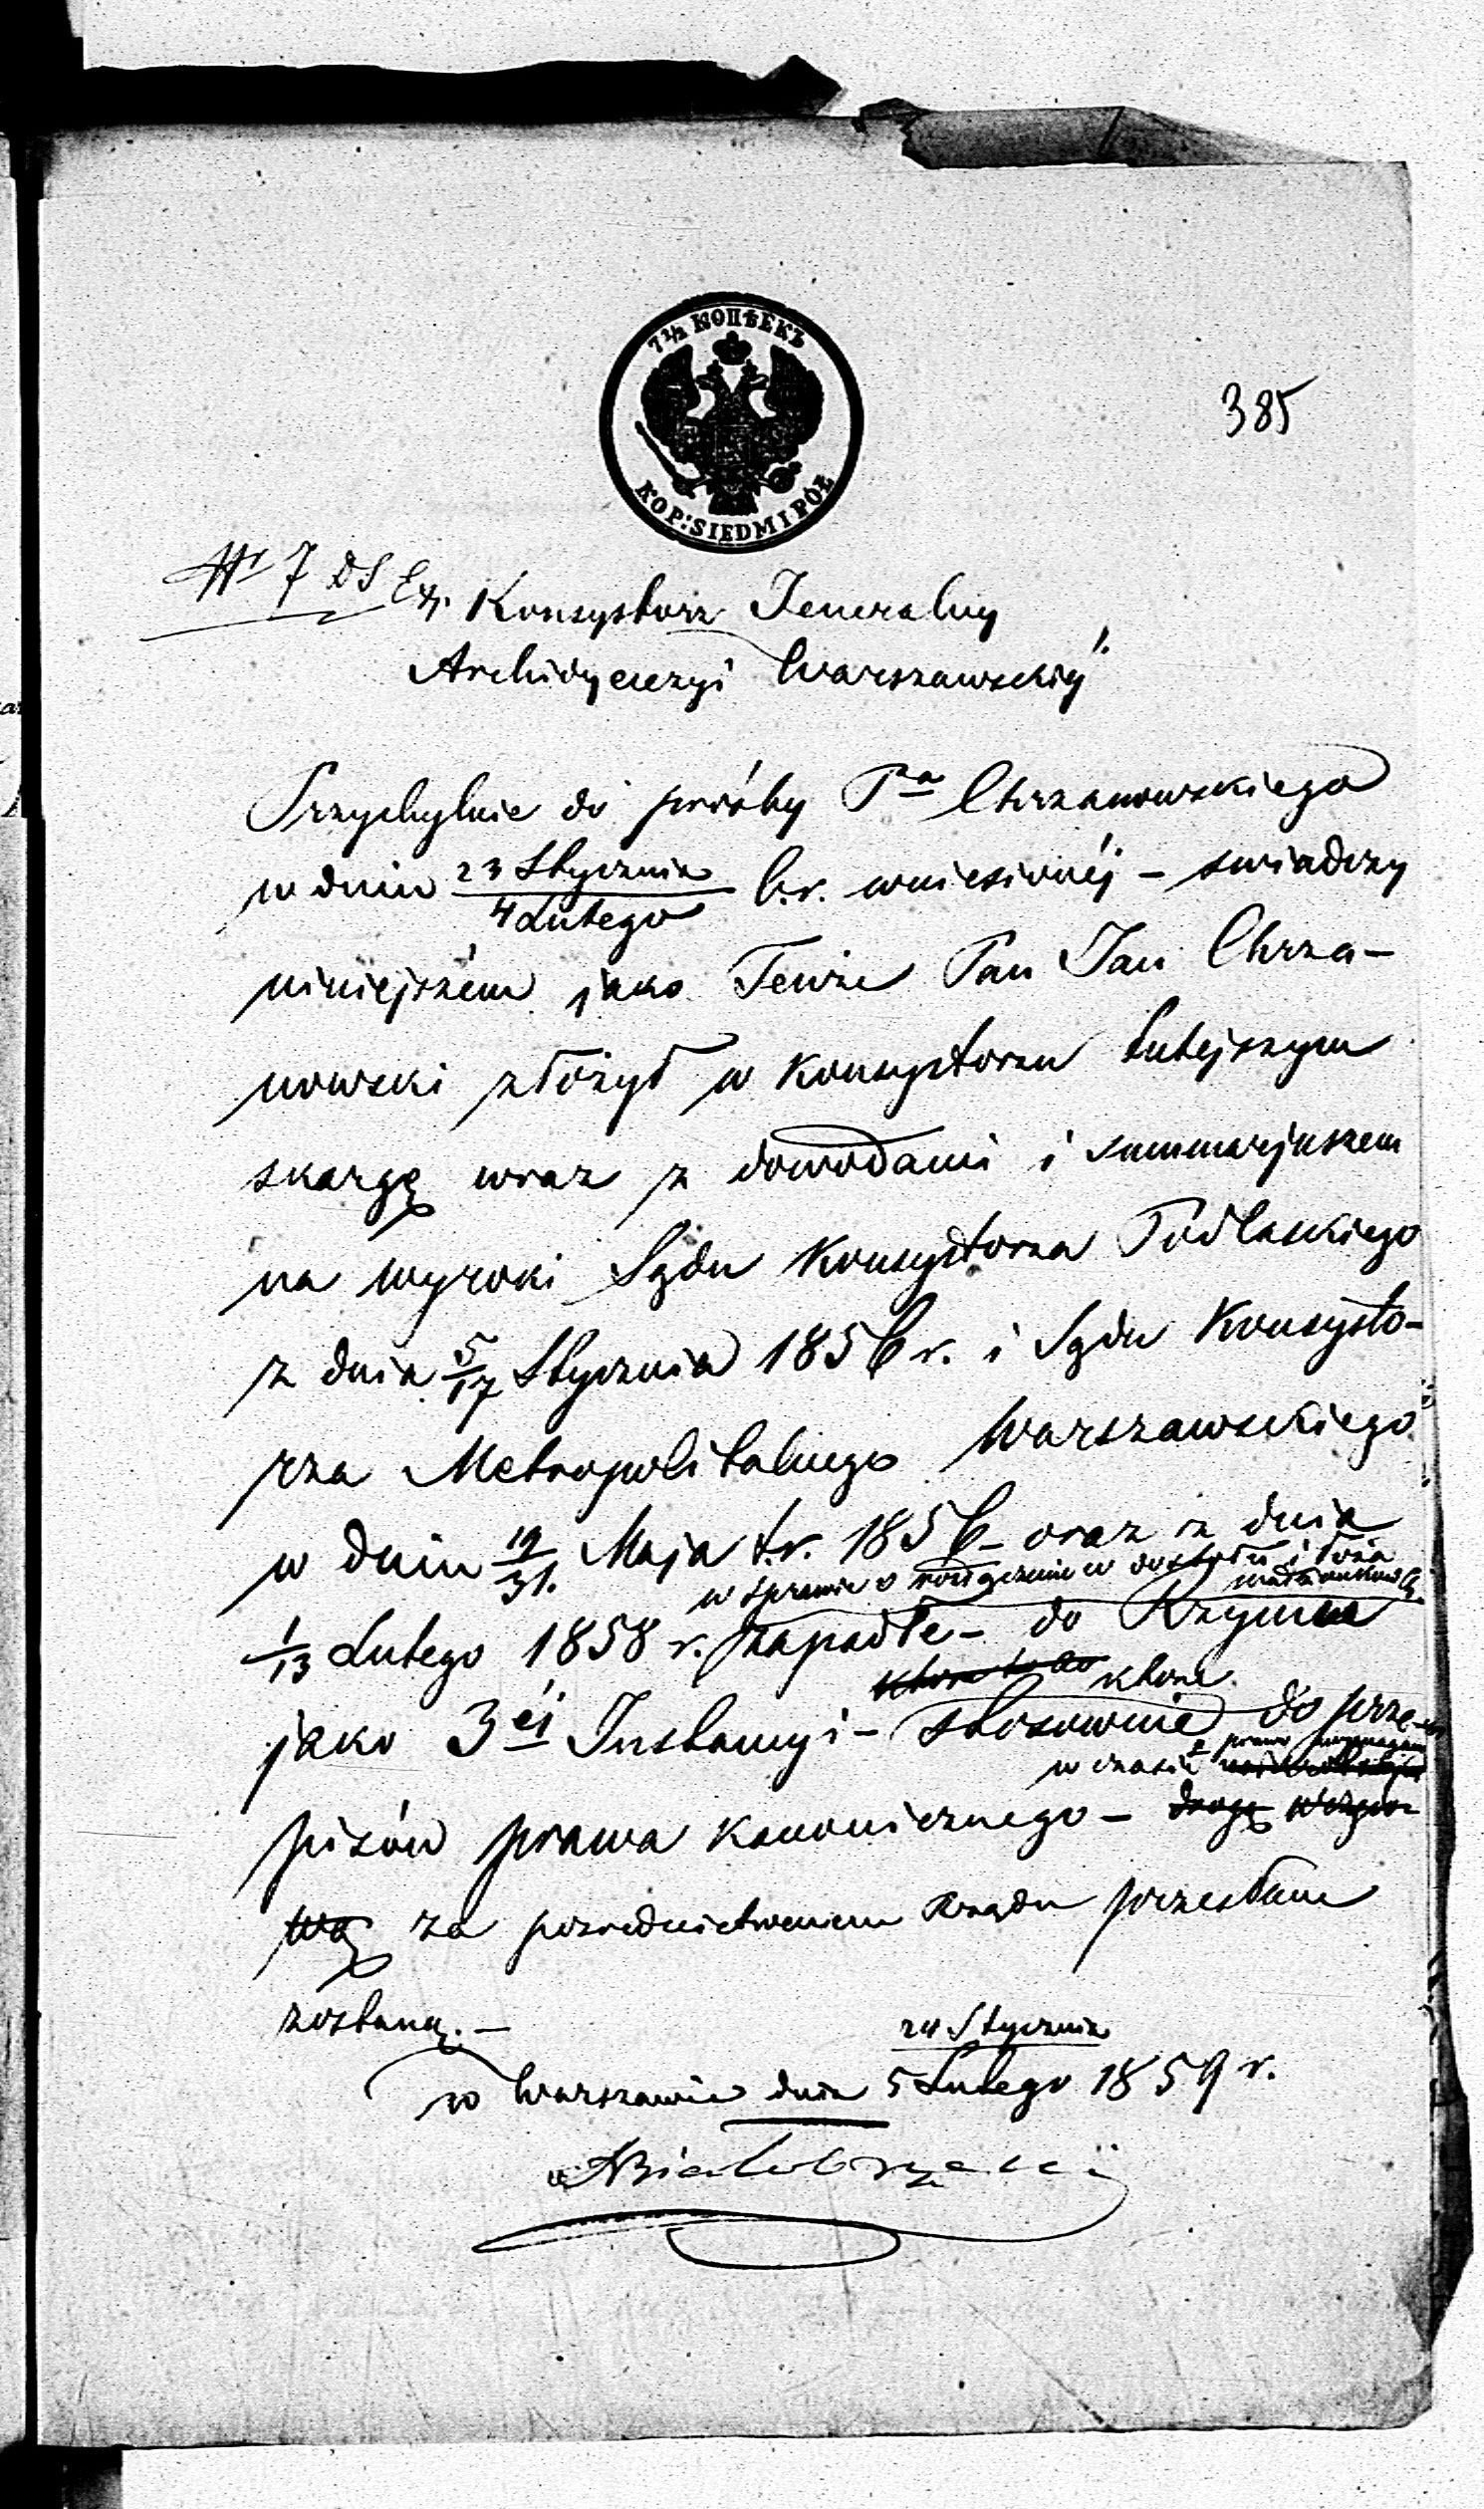 7½ КОПѢЕКЪ
KOP: SIEDM I PÓŁ
385
Nr 7 DS Ex.
Konsystorz Jeneralny
Archidyecezyi Warszawskiéj
Przychylnie do prośby Pna Chrzanowskiego
w dniu 23 Stycznia / 4 Lutego b.r. wniesionéj – swiadczy
niniejszém jako Tenże Pan Jan Chrza-
nowski złożył w Konsystorzu tutejszym
skargę wraz z dowodami i summaryuszem
na wyroki Sądu Konsystorza Podlaskiego
z dnia 5/17 Stycznia 1856 r. i Sądu Konsysto-
rza Metropolitalnego Warszawskiego
w dniu 19/31. Maja t.r. 1856 – oraz z dnia
w sprawie o rozłączenie w do stołu i łoża
małżeńskie
1/13 Lutego 1858 r. zapadłe – do Rzymu
które
jako 3éj Instancyi – stosownie do prze-
w czasie prawem
pisów prawa kanonicznego – drogą
wą za pośrednictwem Rządu przesłane
zostaną. –
24 Stycznia
w Warszawie dnia 5 Lutego 1859 r.
Białobrzeski